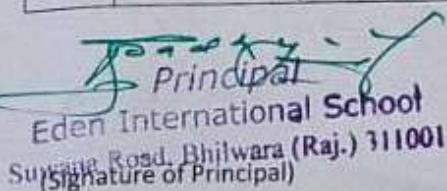 Principal
Eden International School
Suwana Road, Bhilwara (Raj.) 311001
(Signature of Principal)